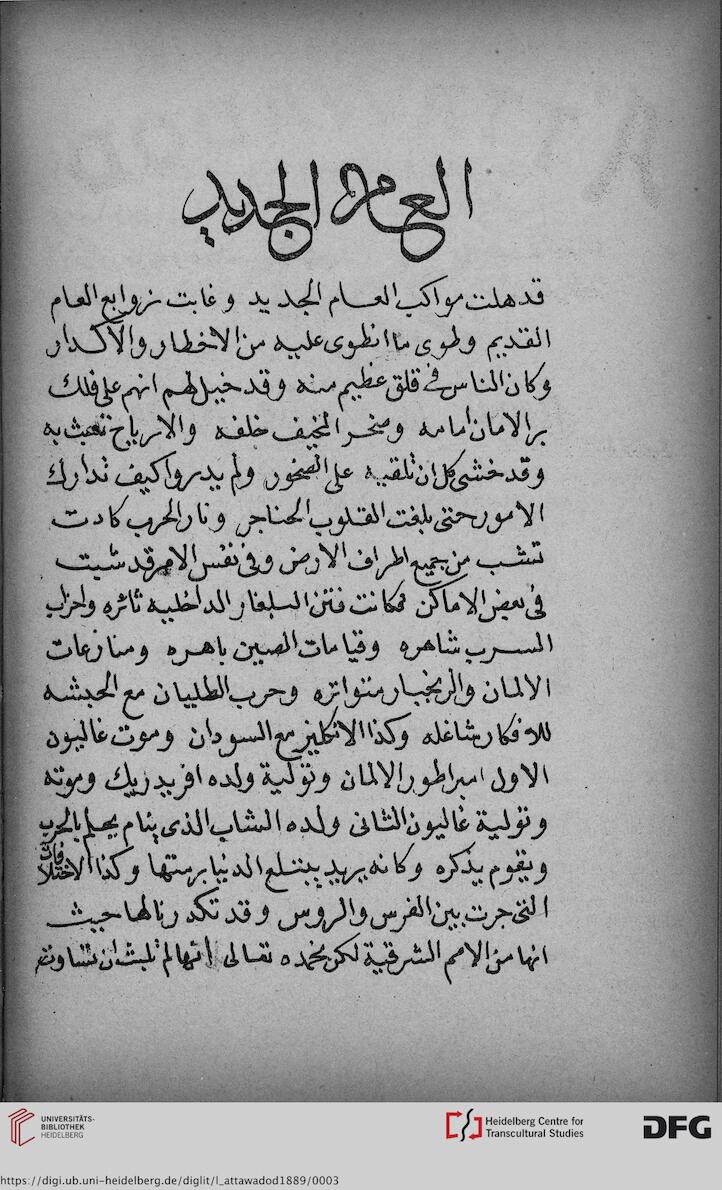 العام الجديد
قد هلت مواكب العام الجديد وغابت زوابع العام
القديم وطوى ما انطوى عليه من الاخطار والاكدار
وكان الناس في قلق عظيم منه وقد خيل لهم انهم على فلك
بر الامان امامه وصخر المخيف خلفه والارياح تعبث به
وقد خشى كل ان تلقيه على الصخور ولم يدروا كيف تدارك
الامور حتى بلغت القلوب الحناجر ونار الحرب كادت
تشب من جميع اطراف الارض وفي نفس الامر قد شبت
في بعض الاماكن فكانت فتن البلغار الداخلية ثائره واحزاب
السرب شاهره وقيامات الصين باهره ومنازعات
الالمان والزنجبار متواتره وحرب الطليان مع الحبشه
للافكار شاغله وكذا الانكليز مع السودان وموت غاليون
الاول امبراطور الالمان وتولية ولده افريدزيك وموته
وتولية غاليون الثانى ولده الشاب الذى ينام يحلم بالحرب
ويقوم يذكره وكانه يريد يبتلع الدنيا برمتها وكذا الاختلافات
التى جرت بين الفرس والروس وقد تكدرنا لها حيث
انها من الامم الشرقية لكن بحمده تعالى انها لم تلبث ان
UNIVERSITÄTS-
BIBLIOTHEK
HEIDELBERG
Heidelberg Centre for
Transcultural Studies
DFG
https://digi.ub.uni-heidelberg.de/diglit/l_attawadod1889/0003